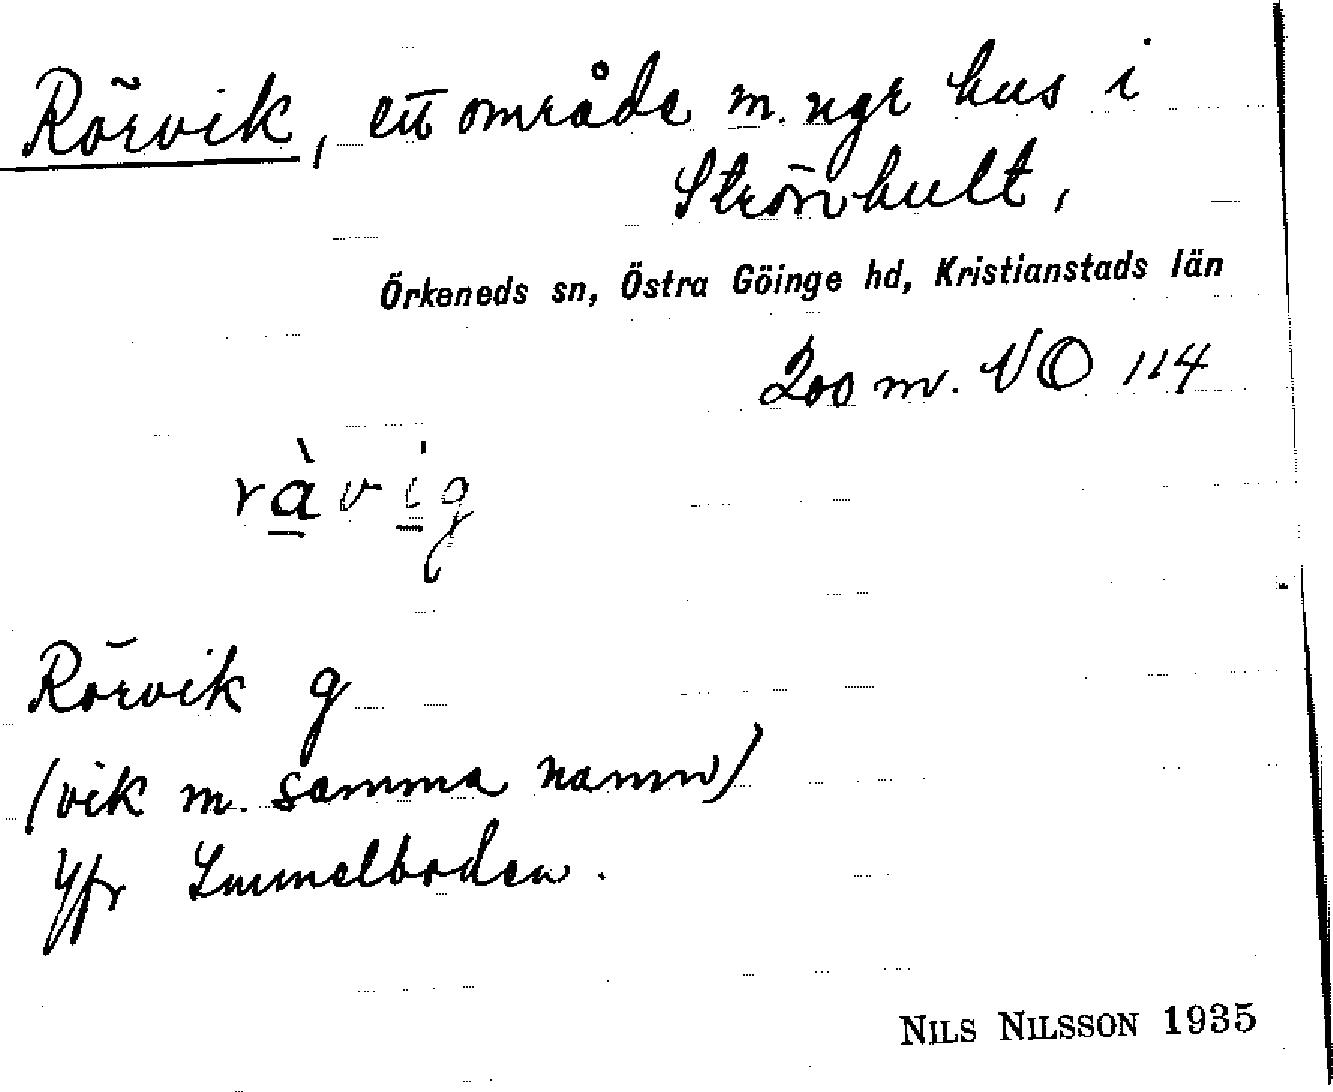 Rörvik, ett område m. ngr hus i
Strönhult,
Örkeneds sn, Östra Göinge hd, Kristianstads län
200 m. NO 114
ràvig
Rörvik g
(vik m. samma namn)
Jfr Immelboden.
NILS NILSSON 1935